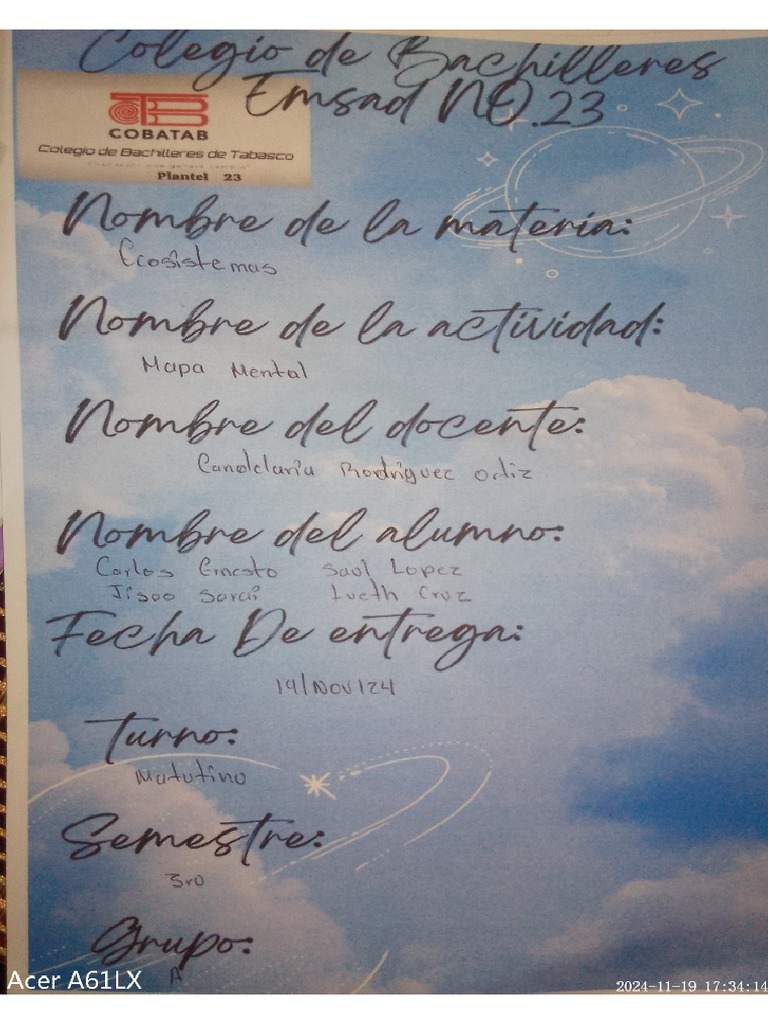 Colegio de Bachilleres
Emsad NO.23
COBATAB
Colegio de Bachilleres de Tabasco
Plantel 23
Nombre de la materia:
Ecosistemas
Nombre de la actividad:
Mapa Mental
Nombre del docente:
Candelaria Rodriguez Ortiz
Nombre del alumno:
Carlos Ernesto Saul Lopez
Jisoo Sarai Iveth Cruz
Fecha De entrega:
14/NOV/24
Turno:
Matutino
Semestre:
3ro
Grupo:
A
Acer A61LX
2024-11-19 17:34:14